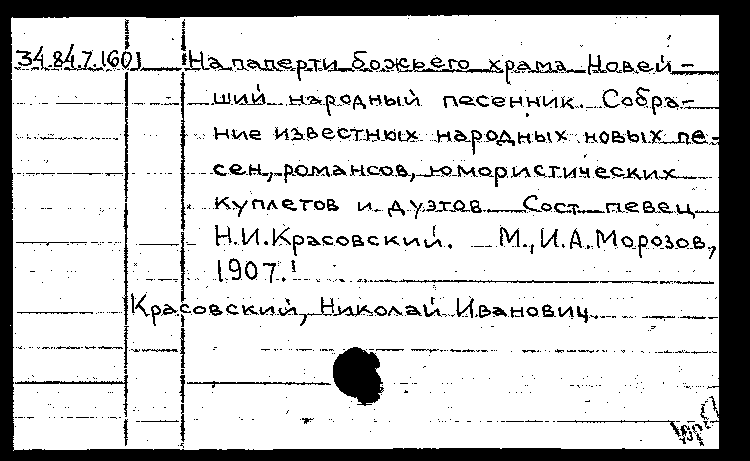 34.84.7.1601 На паперти божьего храма Новей-
ший народный песенник. Собра-
ние известных народных новых пе-
сен, романсов, юмористических
куплетов и дуэтов Сост. певец
Н.И.Красовский. М., И.А.Морозов,
1907.
Красовский, Николай Иванович.